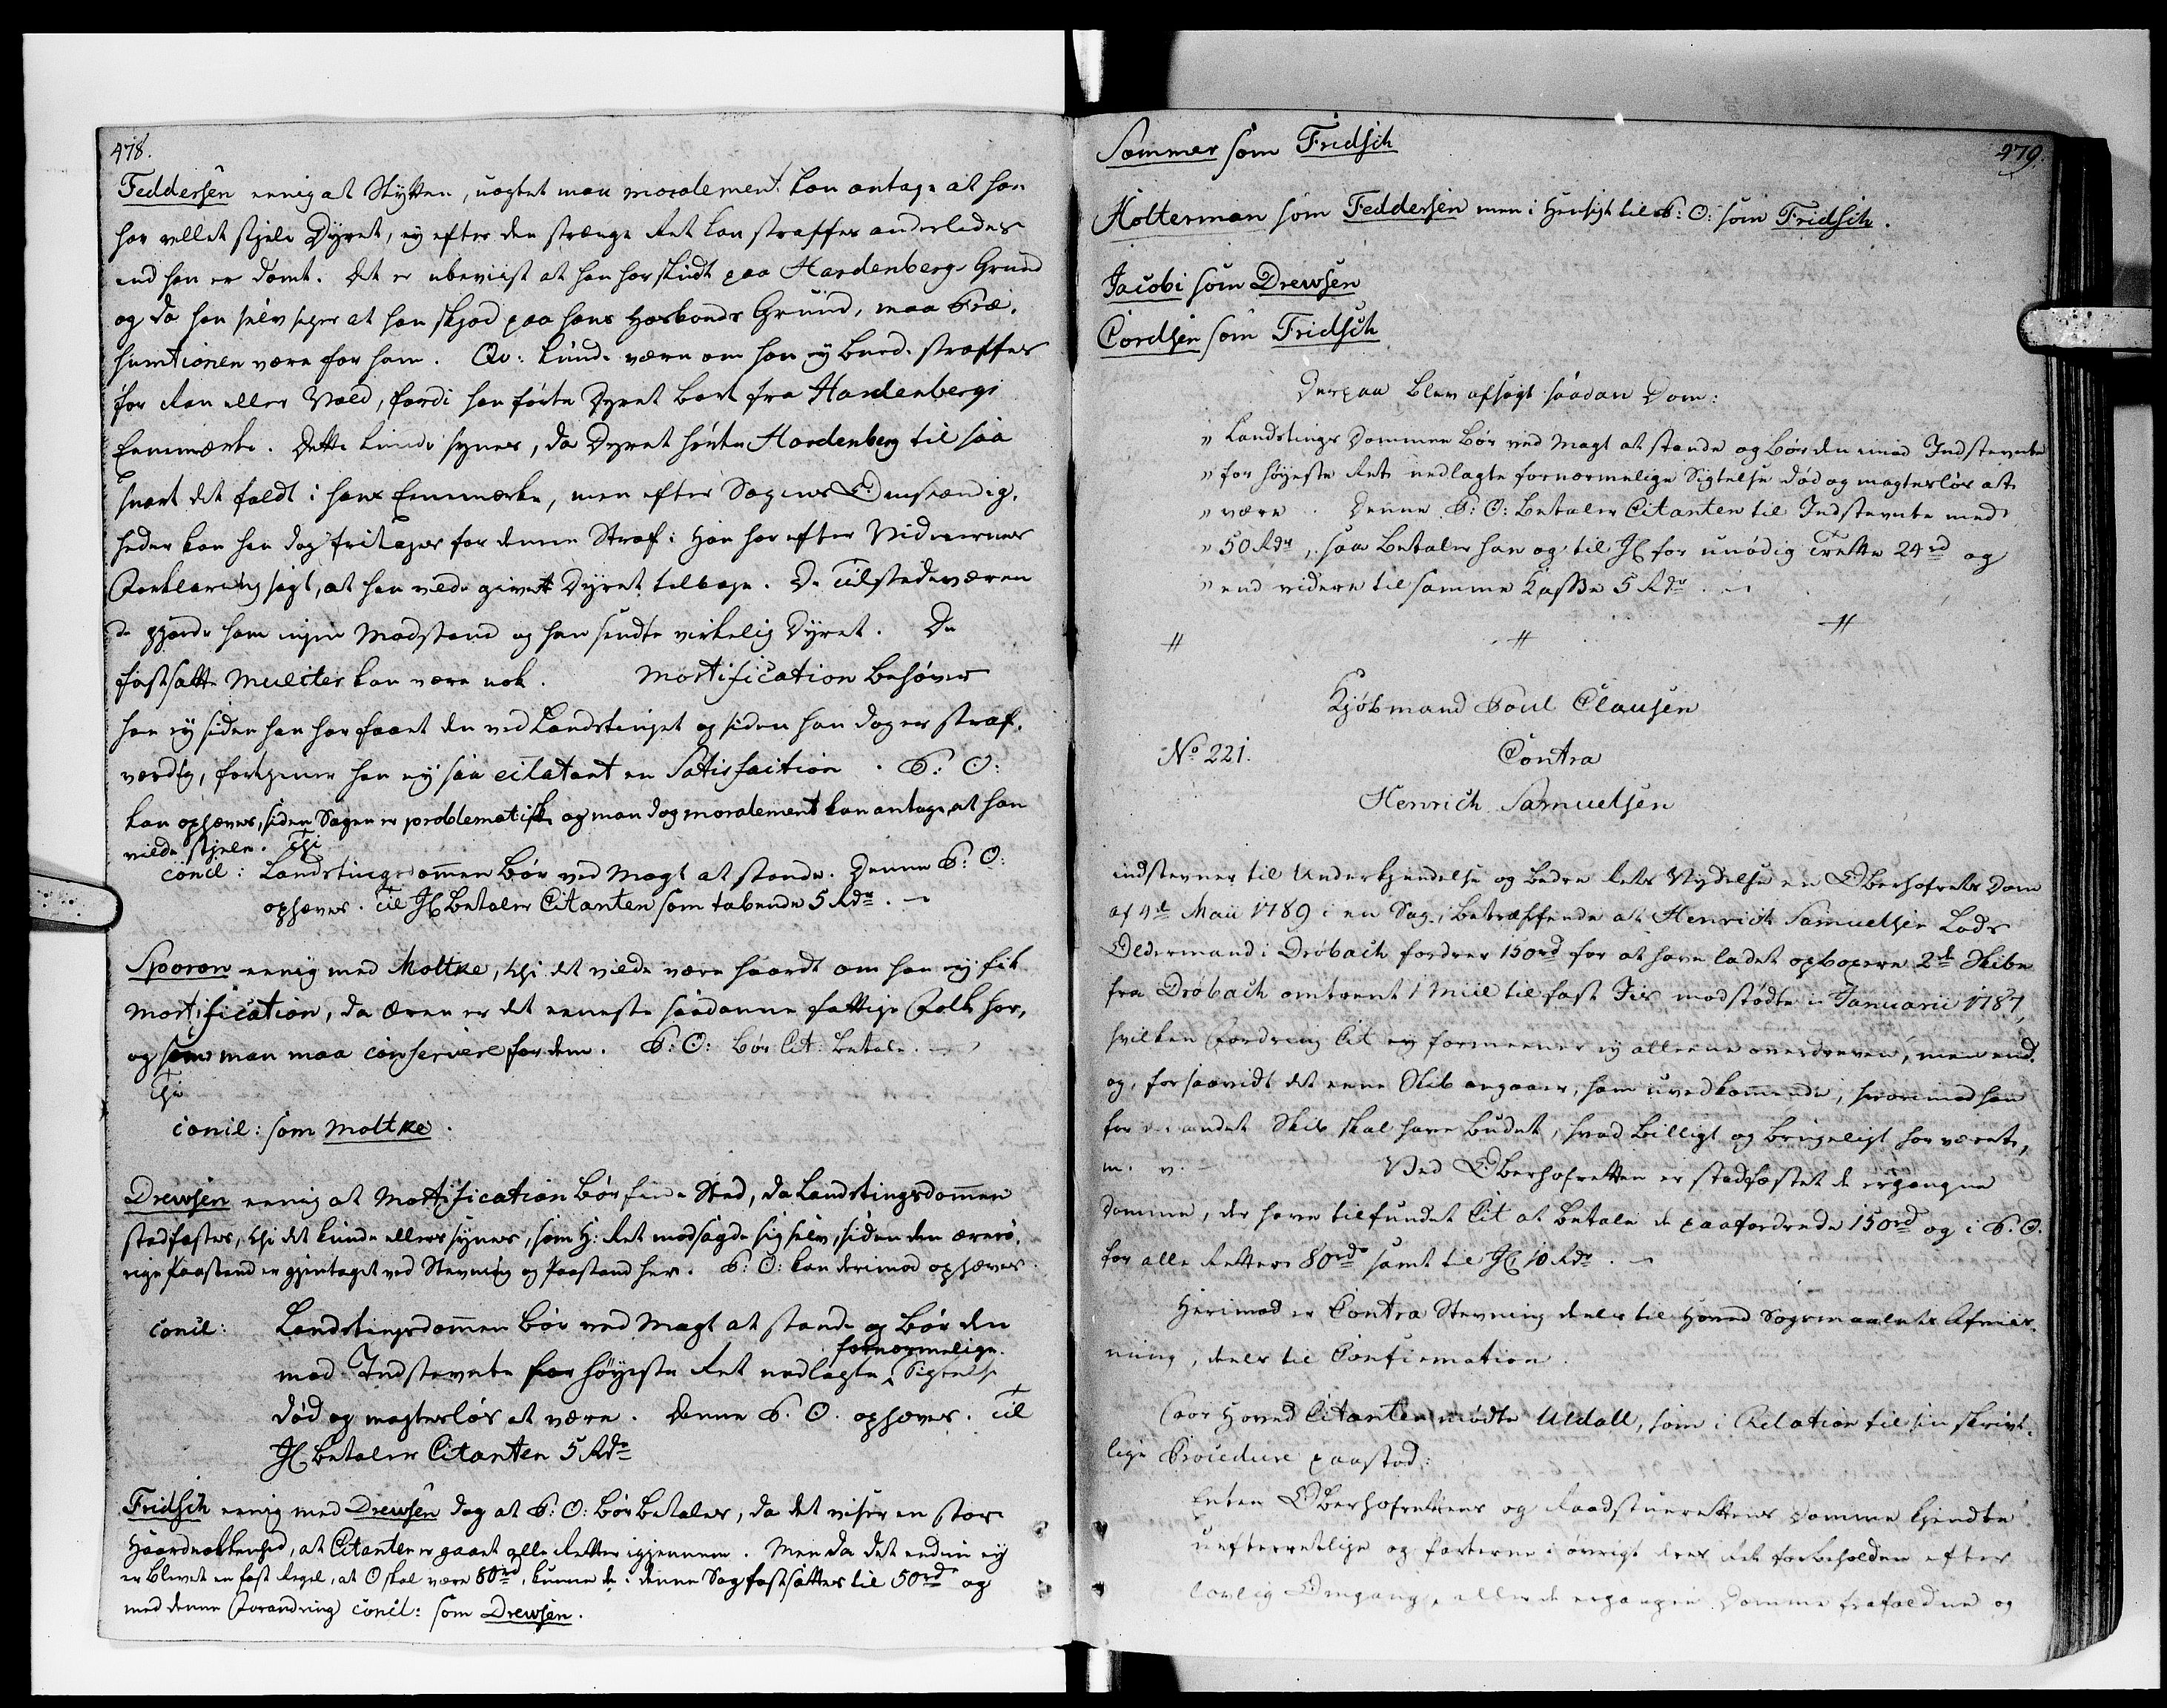 478.
Feddersen eenig at Skytten, uagtet man moralement kan antage at han
har villet stjele Dyret, ej efter den strænge Ret kan straffes anderledes
end han er dømt. Det er ubeviist at han har skudt paa Hardenbergs Grund
og da han selv siger at han skjød paa hans Hosbonds Grund, maa Præ-
sumtionen være for ham. Qv: kunde være om han ej burde straffes
for Ran eller Vold, fordi han førte Dyret bort fra Hardenbergs
Enemærke. Dette kunde synes, da Dyret hørte Hardenberg til saa
snart det faldt i hans Enemærke, men efter Sagens Omstændig-
heder kan han dog fritages for denne Straf: Han har efter Vidnernes
Forklaring sagt, at han vilde givet Dyret tilbage. De Tilstedeværen
de gjorde ham ingen Modstand og han sendte virkelig Dyret. De
fastsatte Mulcter kan være nok. Mortification behøver
han ej siden han har faaet den ved Landstinget og siden han dog er straf-
værdig, fortjener han ej saa eclatant en Satisfaction. P: O:
kan ophæves, siden Sagen er problematisk og man dog moralement kan antage, at han
vilde stjele. Thi
concl: Landstingsdommen bør ved Magt at stande. Denne P: O:
ophæves. Til JC betaler Citanten som tabende 5 Rdr.
Sporon eenig med Moltke, thi det vilde være haardt om han ej fik
Mortification, da Æren er det eeneste saadanne fattige Folk har,
og som man maa conservere for dem. P: O: bør Cit: betale.
Thi
concl: som Moltke.
Drewsen eenig at Mortification bør finde Sted, da Landstingsdommen
stadfæstes, thi det kunde ellers synes, som H: Ret modsagde sig selv, siden den ærerø-
rige Paastand er gjentaget ved Stevning og Paastand her. P: O: kan derimod ophæves.
concl: Landstingsdommen bør ved Magt at stande og bør den
fornærmelige
mod Indstevnte for Høyeste Ret nedlagte Sigtelse
død og magtesløs at være. Denne P. O. ophæves. Til
JC betaler Citanten 5 Rdr
Fridsch eenig med Drewsen dog at P: O: bør betales, da det viser en stor
Haardnakkenhed, at Citanten er gaaet alle Retter igjennem. Men da det endnu ej
er blevet en fast Regel, at O skal være 80rd, kunne de i denne Sag fastsættes til 50rd og
med denne Forandring concl: som Drewsen.
479.
Sommer som Fridsch
Holterman som Feddersen men i Hensigt til P: O: som Fridsch.
Jacobi som Drewsen
Cordsen som Fridsch
Derpaa blev afsagt saadan Dom:
" Landstings Dommen bør ved Magt at stande og bør den imod Indstevnte
" for Høyeste Ret nedlagte fornærmelige Sigtelse død og magtesløs at
" være. Denne P: O: betaler Citanten til Indstevnte med
" 50 Rdr, saa betaler han og til JC for unødig Trette 24rd og
" end videre til samme Kasse 5 Rdr.
# # #
Kjøbmand Poul Clausen
No 221. Contra
Henrich Samuelsen
indstevner til Underkjendelse og bedre Rets Nydelse en Oberhofrets Dom
af 4de Maii 1789 i en Sag, betræffende at Henrich Samuelsen Lods
Oldermand i Drøbach fordrer 150rd for at have ladet opbogere 2de Skibe
fra Drøbach omtrent 1 Miil til fast Iis modstødte i Januarii 1787,
hvilken Fordring Cit ej formeener ej alleene overdreven, men end-
og, forsaavidt det eene Skib angaaer, ham uvedkommende, hvorimod han
for det andet Skib skal have budet, hvad billigt og brugeligt har været,
m. v. Ved Oberhofretten er stadfæstet de ergangne
Domme, der have tilfundet Cit at betale de paafordrede 150rd og i P. O.
for alle Retter 80rdr samt til JC 10 Rdr.
Herimod er Contra Stevning deels til Hoved Søgsmaalets Afviis-
ning, deels til Confirmation.
Paa Hoved Citantens mødte Uldall, som i Relation til sin skrivt-
lige Procedure paastod:
Enten Oberhofrettens og Raadstuerettens Domme kjendte
uefterretlige og Parterne i øvrigt deres Ret forbeholden efter
lovlig Omgang, eller de ergangne Domme frafaldne og